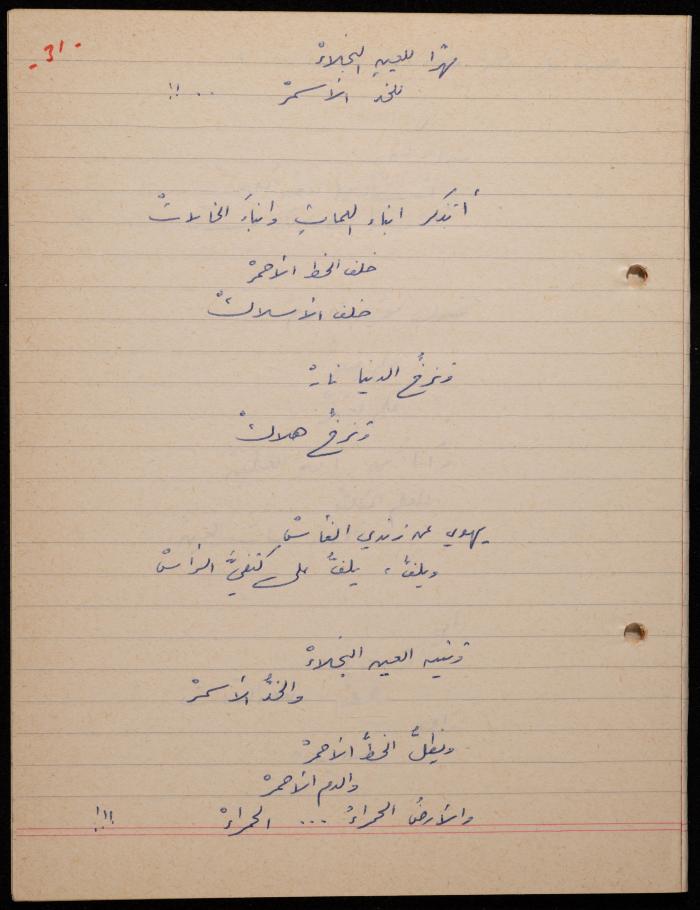 -31-
مهرًا للعين النجلاءْ
للخد الأسمرْ ..!!
أتذكر ابناء العمات وابناءَ الخالاتْ
خلف الخط الأحمرْ
خلف الأسلاكْ
وتزخُّ الدنيا نارْ
وتزخُّ هلاكْ
يهوي عن زندي الفأسْ
ويلفُّ، يلفُّ على كتفيَّ الرأسْ
وتغيب العين النجلاءْ
والخدُّ الأسمرْ
ويظلُّ الخطُّ الأحمرْ
والدم الأحمرْ
والأرضُ الحمراءُ ... الحمراءْ !!!